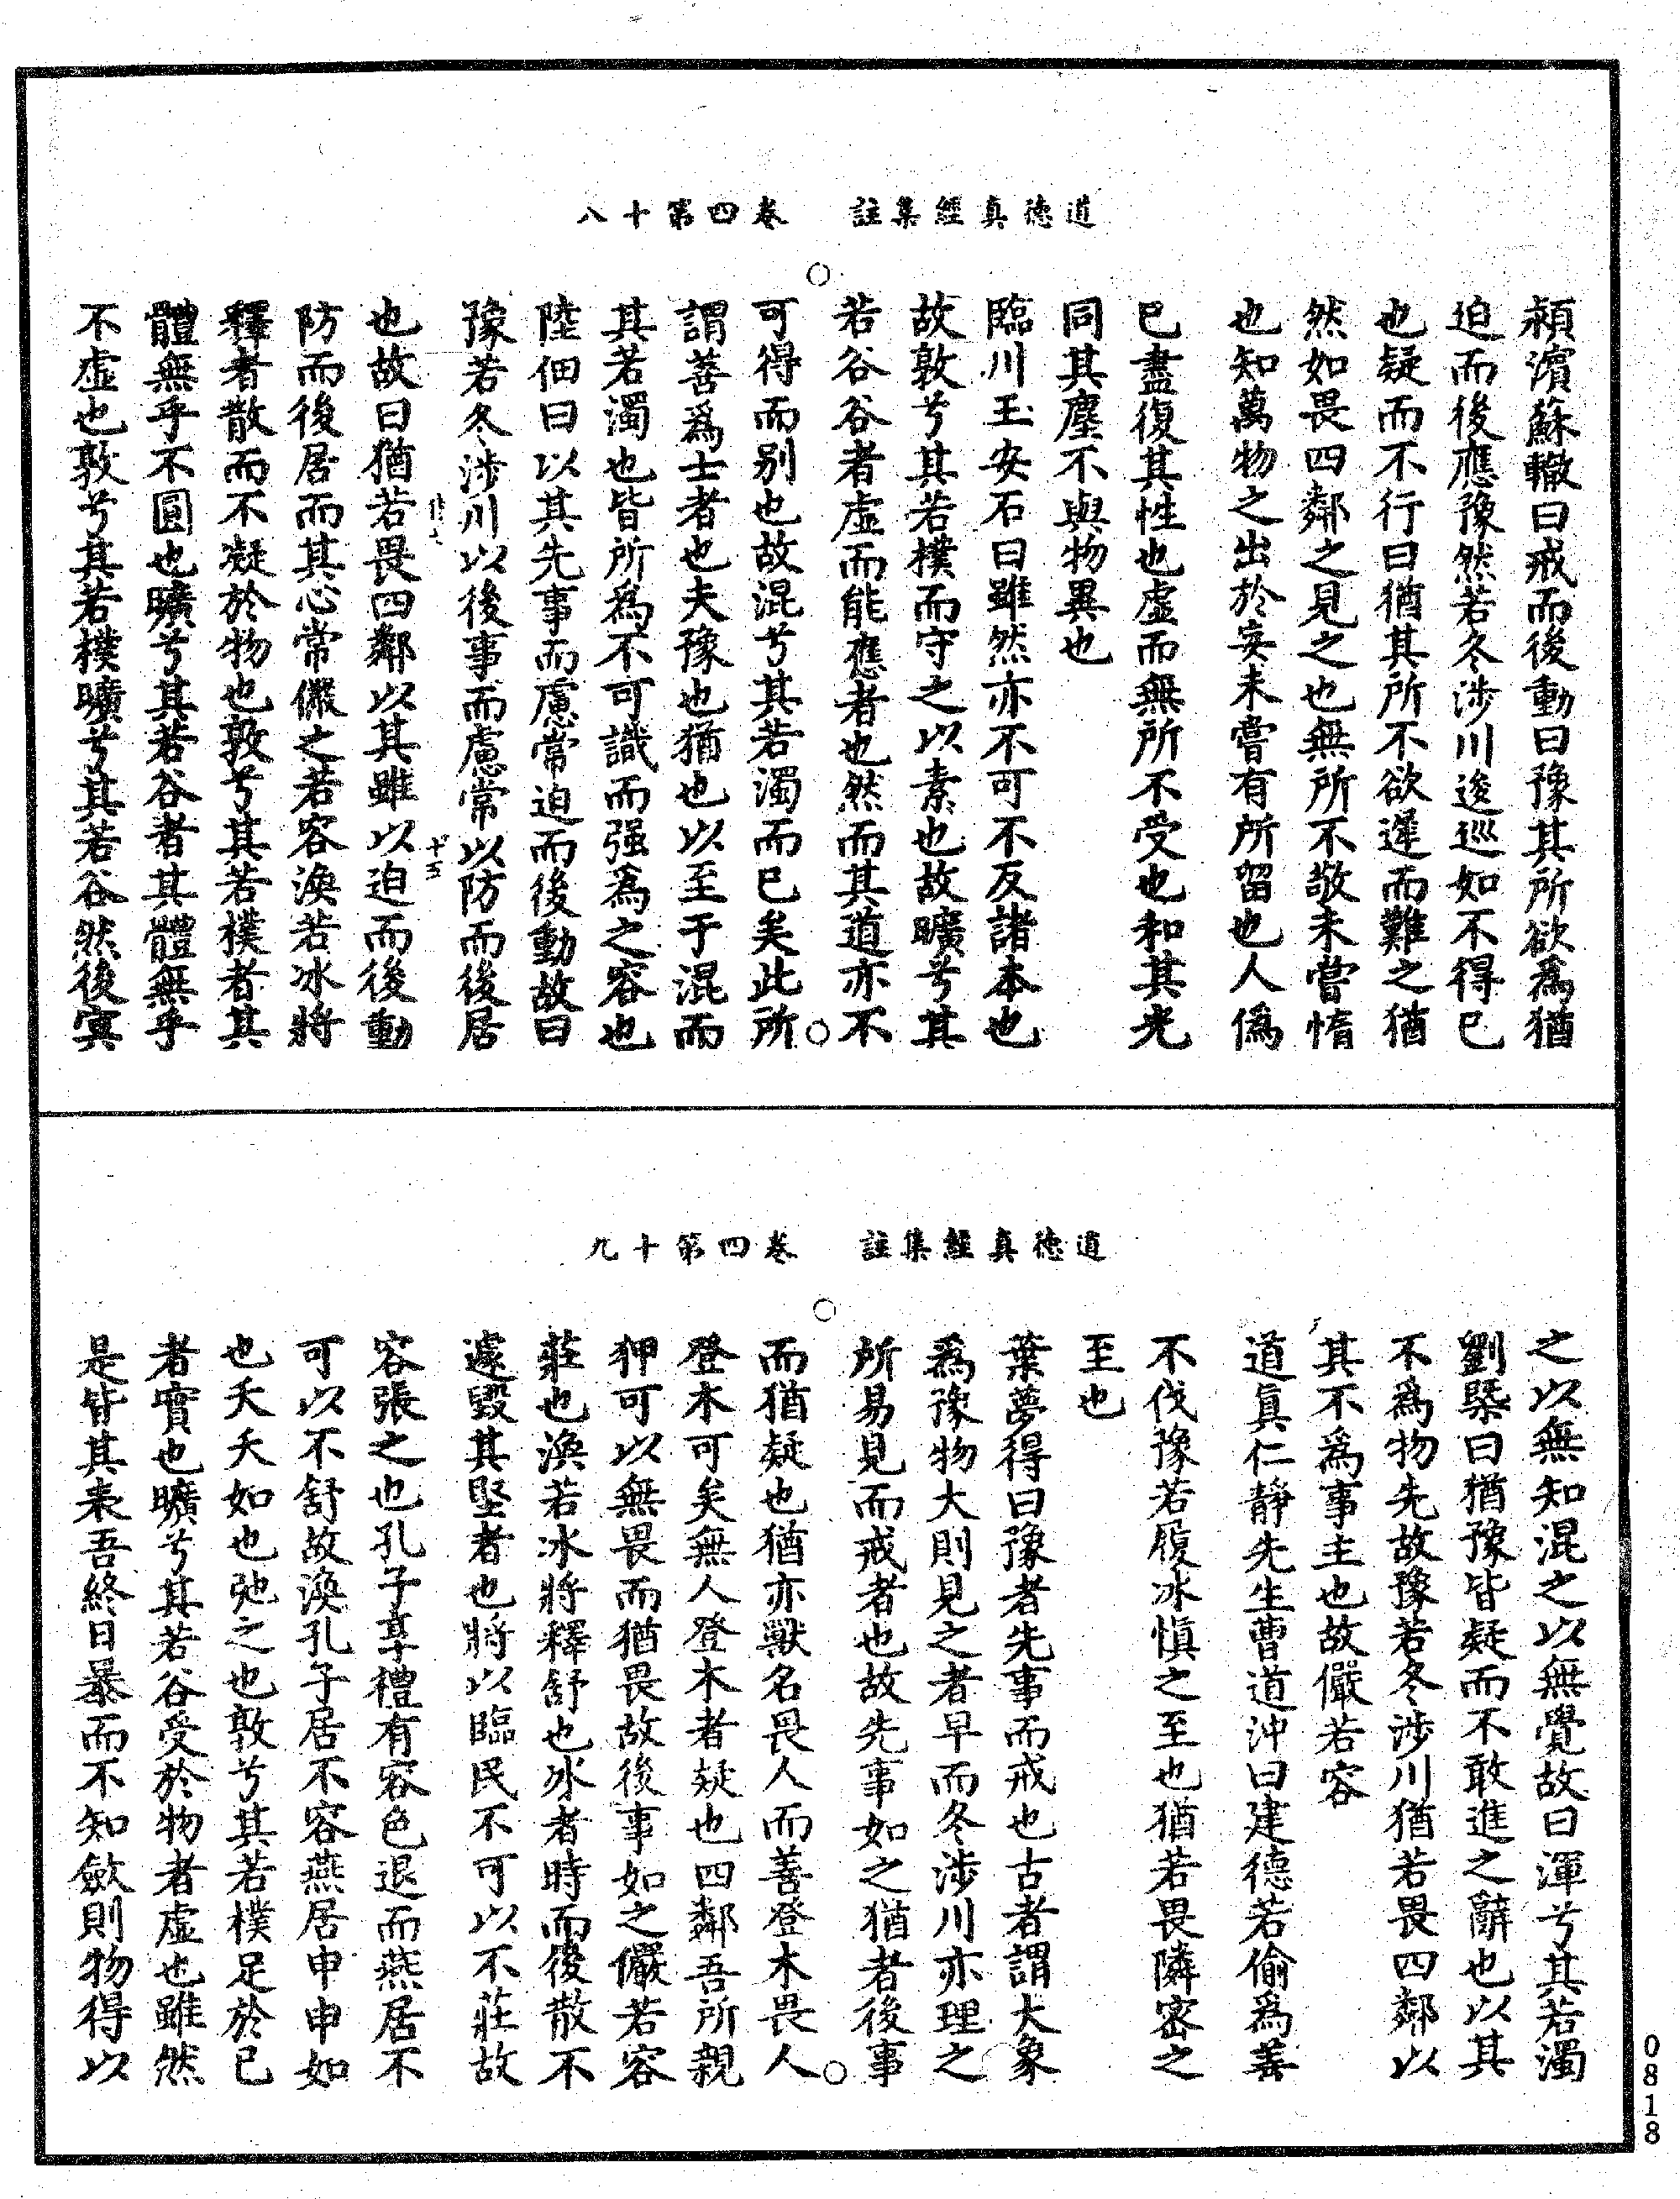 道德真經集註　卷四第十八
潁濱蘇轍曰戒而後動曰豫其所欲爲猶
迫而後應豫然若冬涉川逡巡如不得已
也疑而不行曰猶其所不欲遲而難之猶
然如畏四鄰之見之也無所不敬未嘗惰
也知萬物之出於妄未嘗有所留也人僞
已盡復其性也虛而無所不受也和其光
同其塵不與物異也
臨川王安石曰雖然亦不可不反諸本也
故敦兮其若樸而守之以素也故曠兮其
若谷谷者虛而能應者也然而其道亦不
可得而别也故混兮其若濁而已矣此所
謂善爲士者也夫豫也猶也以至于混而
其若濁也皆所爲不可識而强爲之容也
陸佃曰以其先事而慮常迫而後動故曰
豫若冬涉川以後事而慮常以防而後居
也故曰猶若畏四鄰以其雖以迫而後動
防而後居而其心常儼之若容渙若冰將
釋者散而不凝於物也敦兮其若樸者其
體無乎不圓也曠兮其若谷者其體無乎
不虛也敦兮其若樸曠兮其若谷然後寘
道德真經集註　卷四第十九
之以無知混之以無覺故曰渾兮其若濁
劉槩曰猶豫皆疑而不敢進之辭也以其
不爲物先故豫若冬涉川猶若畏四鄰以
其不爲事主也故儼若容
道眞仁靜先生曹道沖曰建德若偷爲善
不伐豫若履冰愼之至也猶若畏隣密之
至也
葉夢得曰豫者先事而戒也古者謂大象
爲豫物大則見之者早而冬涉川亦理之
所易見而戒者也故先事如之猶者後事
而猶疑也猶亦獸名畏人而善登木畏人
登木可矣無人登木者疑也四鄰吾所親
狎可以無畏而猶畏故後事如之儼若容
莊也渙若冰將釋舒也冰者時而後散不
遽毀其堅者也將以臨民不可以不莊故
容張之也孔子享禮有容色退而燕居不
可以不舒故渙孔子居不容燕居申申如
也夭夭如也弛之也敦兮其若樸足於已
者實也曠兮其若谷受於物者虛也雖然
是皆其表吾終日暴而不知斂則物得以
0818